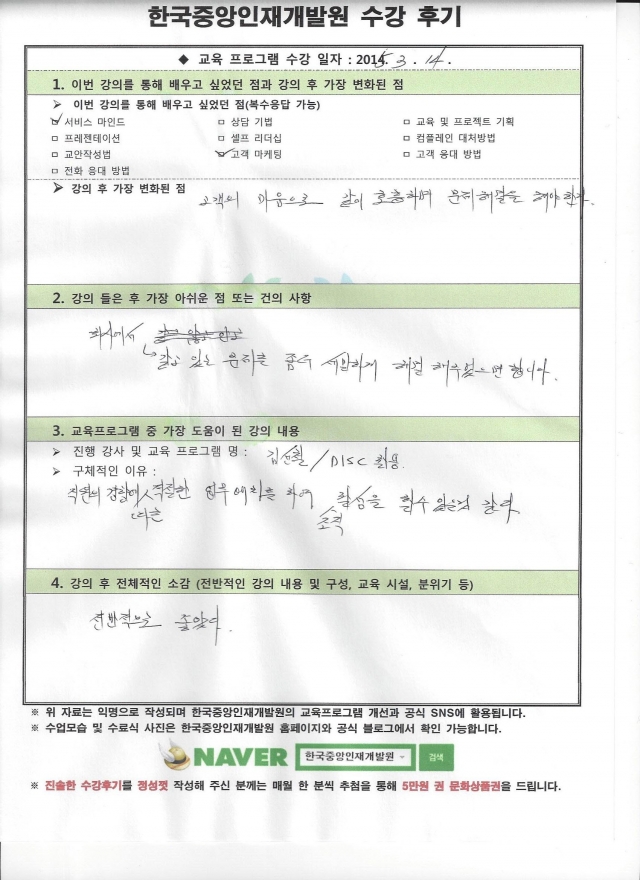 한국중앙인재개발원 수강 후기
◆ 교육 프로그램 수강 일자 : 2014. 3 . 14 .
1. 이번 강의를 통해 배우고 싶었던 점과 강의 후 가장 변화된 점
➢ 이번 강의를 통해 배우고 싶었던 점(복수응답 가능)
☑ 서비스 마인드 □ 상담 기법 □ 교육 및 프로젝트 기획
□ 프레젠테이션 □ 셀프 리더십 □ 컴플레인 대처방법
□ 교안작성법 ☑ 고객 마케팅 □ 고객 응대 방법
□ 전화 응대 방법
➢ 강의 후 가장 변화된 점 고객의 마음으로 같이 호흡하며 문제해결을 해야 한다.
2. 강의 들은 후 가장 아쉬운 점 또는 건의 사항
회사에서
갖고 있는 문제를 좀더 세밀하게 해결 해주었으면 합니다.
3. 교육프로그램 중 가장 도움이 된 강의 내용
➢ 진행 강사 및 교육 프로그램 명 : / DISC 활용.
➢ 구체적인 이유 :
직원의 성향에 따른 적절한 업무 배치를 하여 조직 을 할수 있을것 같다
4. 강의 후 전체적인 소감 (전반적인 강의 내용 및 구성, 교육 시설, 분위기 등)
전반적으로 좋았다.
※ 위 자료는 익명으로 작성되며 한국중앙인재개발원의 교육프로그램 개선과 공식 SNS에 활용됩니다.
※ 수업모습 및 수료식 사진은 한국중앙인재개발원 홈페이지와 공식 블로그에서 확인 가능합니다.
NAVER 한국중앙인재개발원 검색
※ 진솔한 수강후기를 정성껏 작성해 주신 분께는 매월 한 분씩 추첨을 통해 5만원 권 문화상품권을 드립니다.